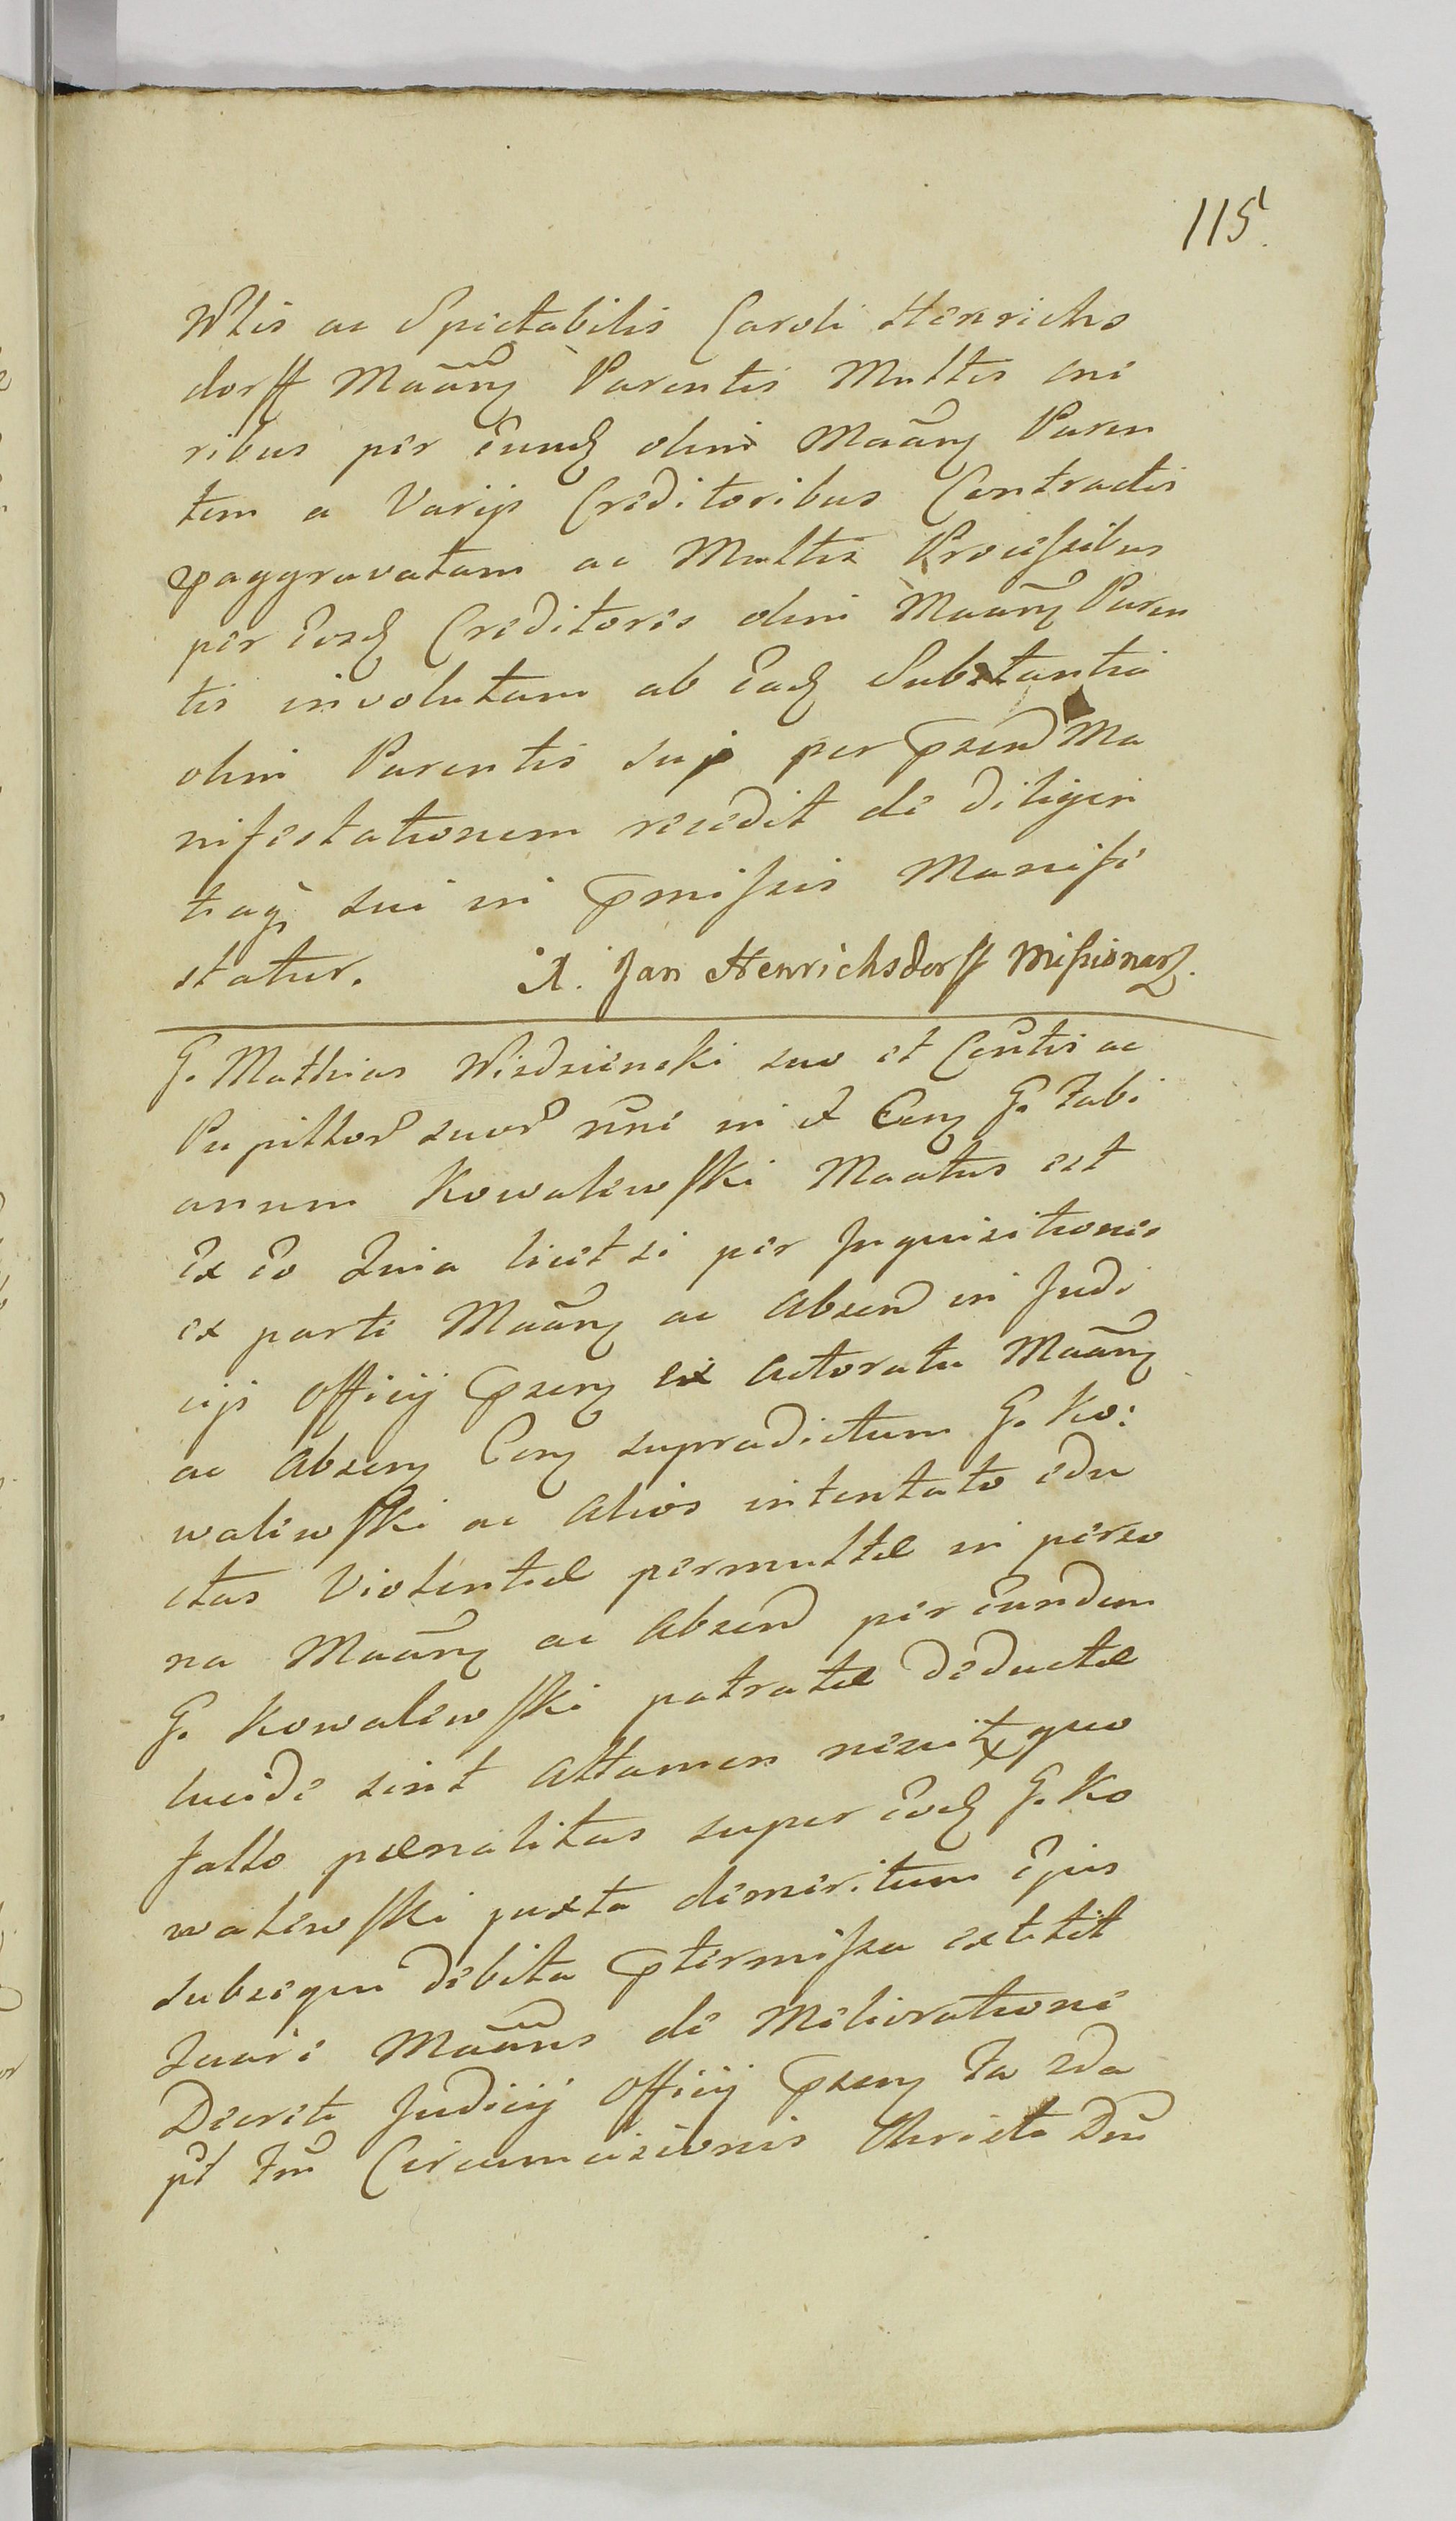 115.
Nblis ac Spectabilis Caroli Henrichs
dorff Maāng Parentis Multis one
ribus per eund olim Maāng Paren
tem a Varijs Creditoribus Contractis
praggravatam ac Multis Processibus
per eosd Creditores olim Maāng Paren
tis involutam ab ead Substantia
olim Parentis sui per prsen Ma
nifestationem recedit de diligen
tiaq sui in pmissis Manife
statur. X. Jan Henrichsdorff Missionarz.
G. Mathias Wisdzienski suo et Centis ac
Pupillor suor nne in et Cong G. Fabi
anum Kowalewski Maatus est
Ex eo Quia licet si per Inquisitiones
ex parte Maāng ac Absen in Judi
cijs Officij prseng ex Actoratu Maāng
ac Abseng Cong supradictum G. Ko:
walewski ac Alios intentato edu
ctas Violentiæ permultæ in perso
na Maāng ac Absen per eundem
G. Kowalewski patratæ deductæ
lucide sint Attamen nescitx quo
fatto pænalitas super eod G. Ko
walewski juxta demeritum Ejus
subsequi debita ptermissa extitit
Quare Maāns de Melioratione
Decreti Judicij Officij prseng Fa 2da
pt Fm Circumcisionis Christi Dni